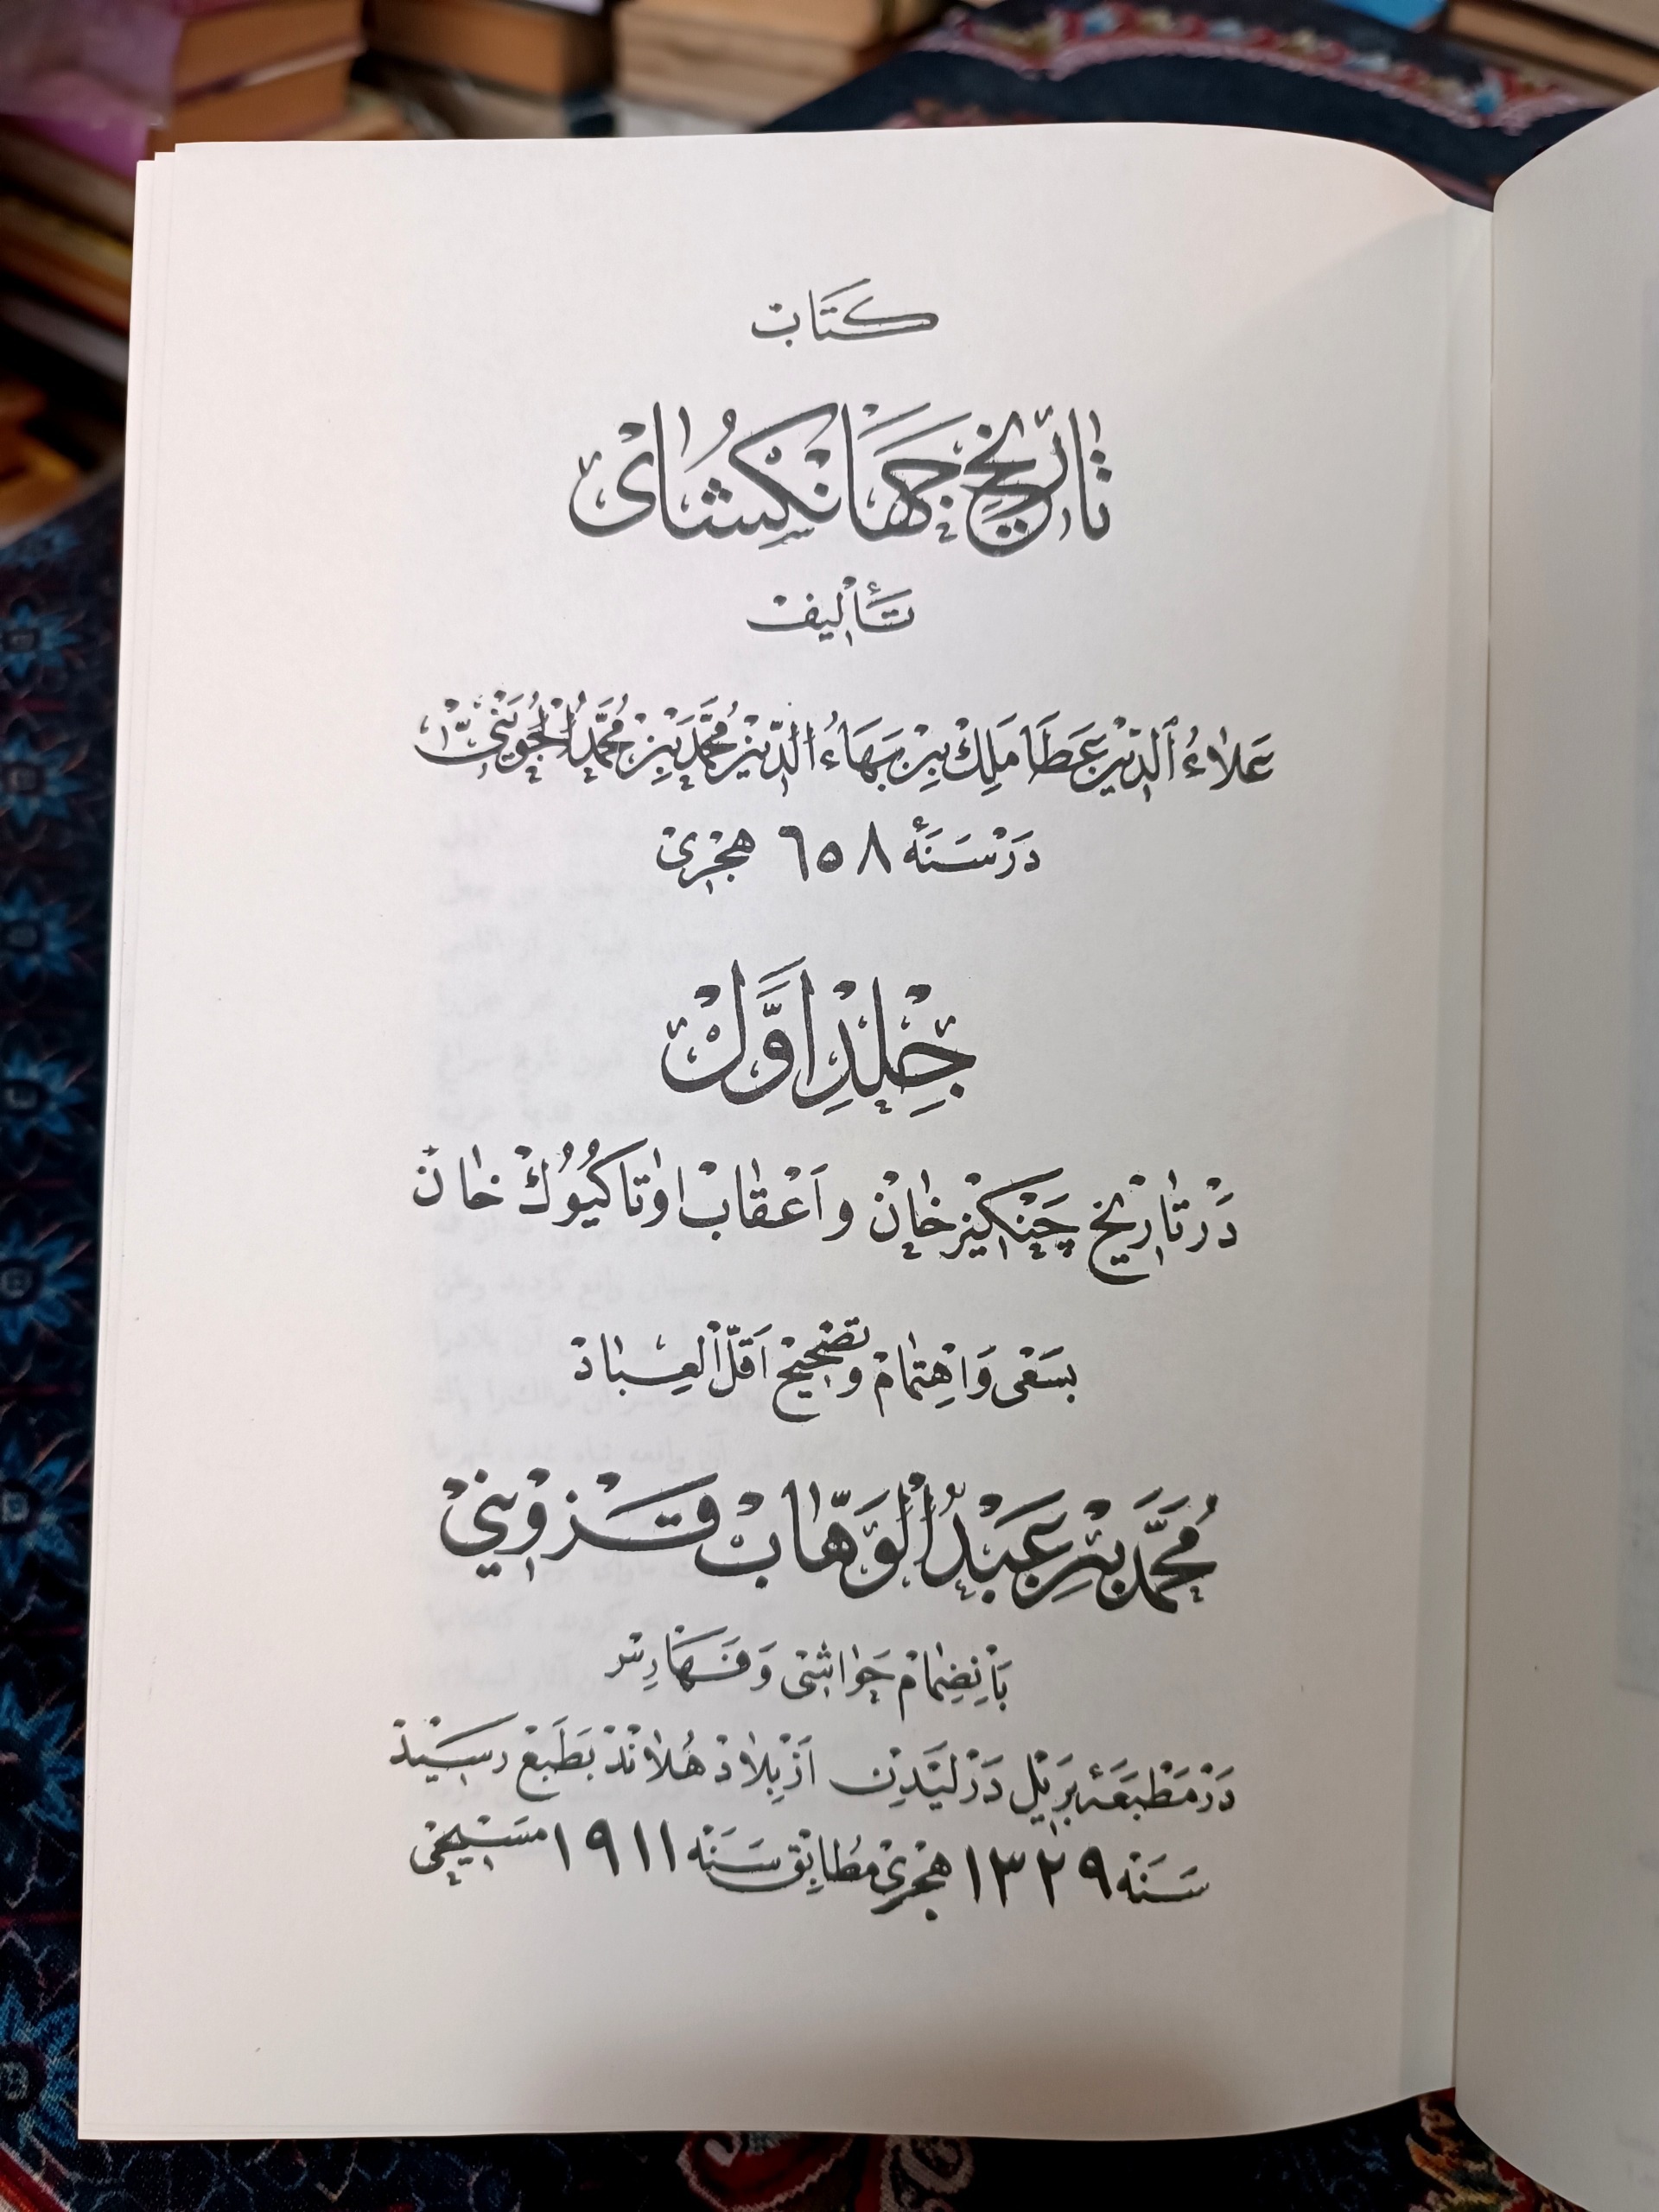 كتاب
تاریخ جهانکشای
تألیف
علاء الدین عطا ملك بن بهاء الدین محمد بن محمد الجوینی
در سنهٔ ٦٥٨ هجری
جلد اول
در تاریخ چنکیز خان و اعقاب او تا کیوك خان
بسعی و اهتمام و تصحیح اقل العباد
محمد بن عبد الوهاب قزوینی
بانضمام حواشی و فهارس
در مطبعهٔ بریل در لیدن از بلاد هلاند بطبع رسید
سنه ١٣٢٩ هجری مطابق سنه ١٩١١ مسیحی